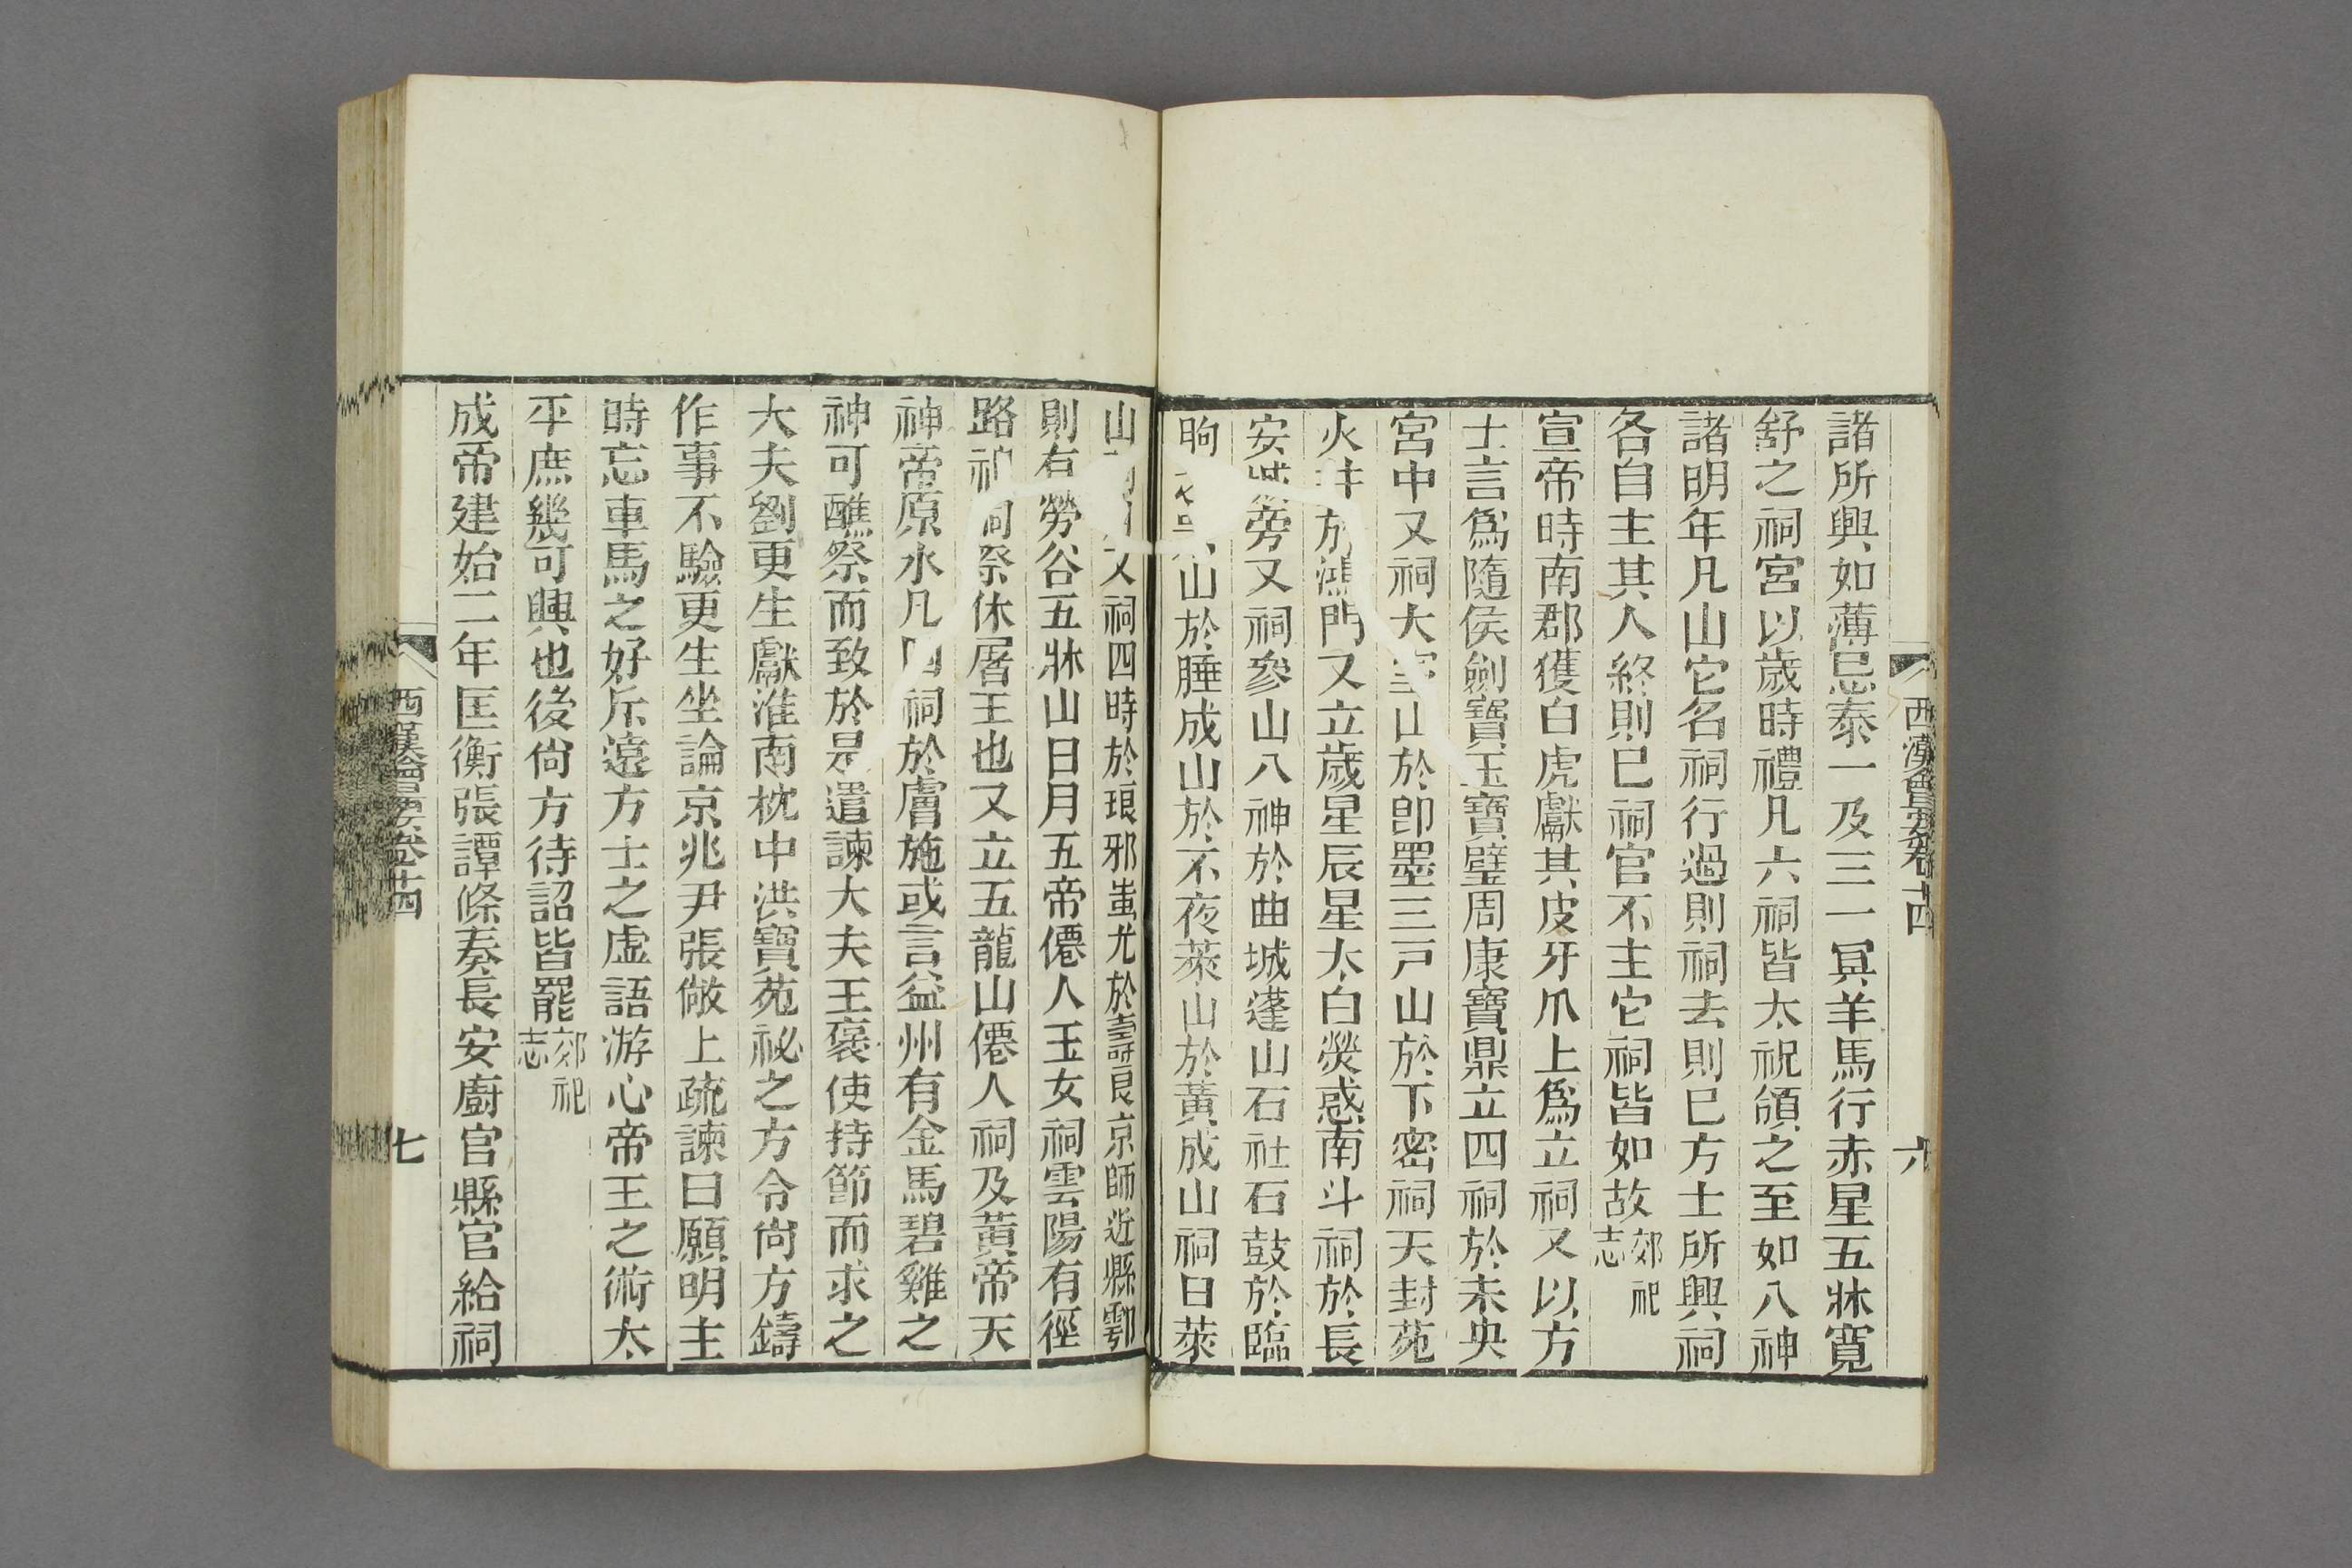 西漢會要卷十四 六
諸所興如薄忌泰一及三一冥羊馬行赤星五牀寬
舒之祠宮以歲時禮凡六祠皆太祝領之至如八神
諸明年凡山它名祠行過則祠去則已方士所興祠
各自主其人終則已祠官不主它祠皆如故郊祀志
宣帝時南郡獲白虎獻其皮牙爪上爲立祠又以方
士言爲隨侯劍寶玉寶璧周康寶鼎立四祠於未央
宮中又祠太室山於卽墨三戶山於下密祠天封苑
火井於鴻門又立歲星辰星太白熒惑南斗祠於長
安城旁又祠參山八神於曲城蓬山石社石鼓於臨
朐 山於腄成山於不夜萊山於黃成山祠日萊
山 又祠四時於琅邪蚩尤於壽良京師近縣鄠
則有勞谷五牀山日月五帝僊人玉女祠雲陽有徑
路神祠祭休屠王也又立五龍山僊人祠及黃帝天
神帝原水凡四祠於膚施或言益州有金馬碧雞之
神可醮祭而致於是遣諫大夫王褒使持節而求之
大夫劉更生獻淮南枕中洪寶苑祕之方令尙方鑄
作事不驗更生坐論京兆尹張敞上疏諫曰願明主
時忘車馬之好斥遠方士之虛語游心帝王之術太
平庶幾可興也後尙方待詔皆罷郊祀志
成帝建始二年匡衡張譚條奏長安廚官縣官給祠
西漢會要卷十四 七